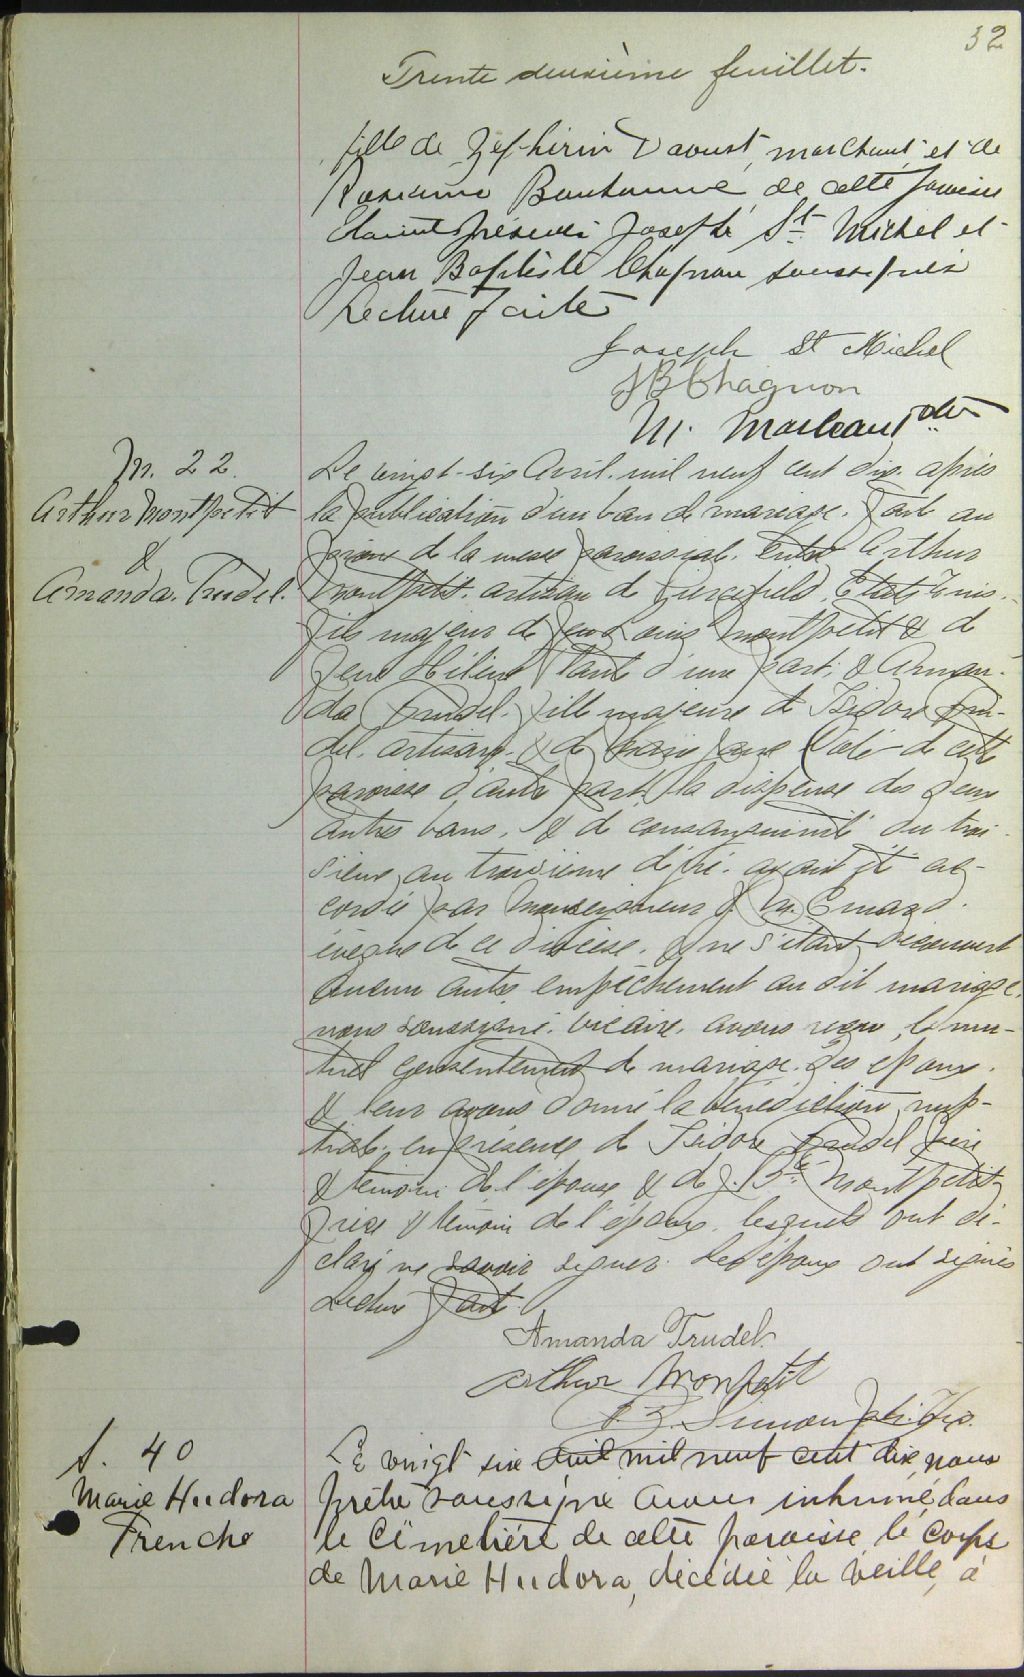 32
Trente deuxième feuillet.
fille de Zéphirin Daoust, marchand, et de
de cette paroisse
Etaient présents Joseph St Michel et
Jean Baptiste Chagnon soussignés
Lecture faite
Joseph St Michel
JB Chagnon
M. ptre
M. 22
Arthur Montpetit
&
Amanda Trudel.
Le vingt-six Avril mil neuf cent dix après
la publication d'un ban de mariage. fait au
prône de la messe paroissiale. Entre Arthur
Montpetit. artisan de Etats Unis.
fils majeur de feu Louis Montpetit & de
feue Hélène d'une part; & Aman-
da Trudel. fille majeure de Isidore Tru-
del. artisan. & de de cette
paroisse d'autre part la dispense des deux
autres bans. & de consanguinité du troi-
sième au troisième dégré. ayant été ac-
cordée par Monseigneur J. M. Emard.
évêque de ce diocèse. & ne s'étant découvert
aucun autre empêchement au dit mariage.
nous soussigné. vicaire. avons reçu le mu-
tuel consentement de mariage. des époux.
& leur avons donné la bénédiction nup-
tiale. en présence de Isidore Trudel père
& témoin de l'épouse & de J. Bte Montpetit
frère & témoin de l'époux. lesquels ont dé-
claré ne savoir signer. Les époux ont signés
Lecture fait.
Amanda Trudel.
Arthur Monpetit
Simon ptre. Vic.
S. 40
Marie Hudora
Frenche
Le vingt six avril mil neuf cent dix, nous
prêtre soussigné avons inhumé dans
le cimetière de cette paroisse, le corps
de Marie Hudora, décédée la veille, à